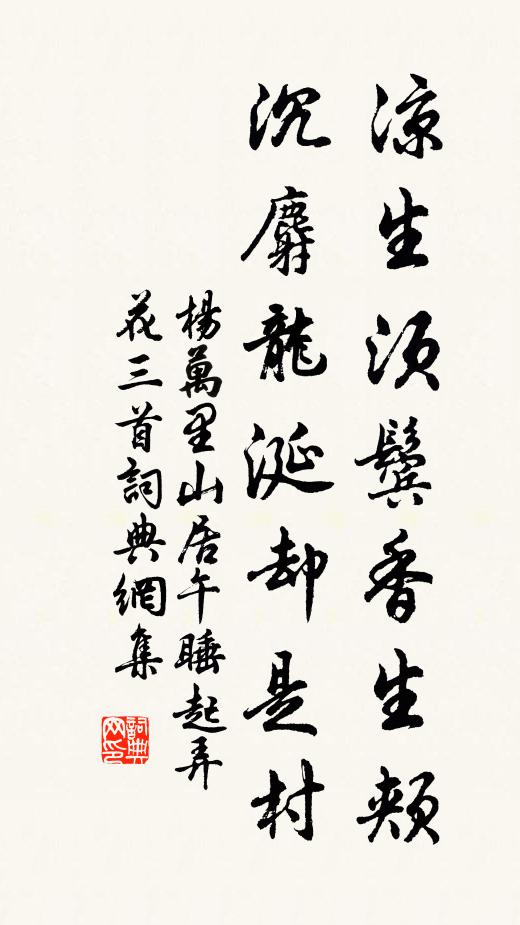 涼生須鬢香生頰
沉麝龍涎却是村
楊萬里山居午睡起弄
花三首詞典網集
詞典
网印